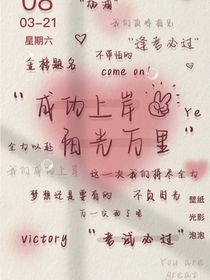 08
03-21
星期六
我们顶峰相见
"逢考必过"
金榜题名
不带怕的
come on!
"成功上岸
Ye
阳光万里"
全力以赴
这一次我们将尽全力
我们成功上岸
梦想还是要有的
不负韶华
万一实现了呢
壁纸
光影
泡泡
victory
"考试必过"
You are
great